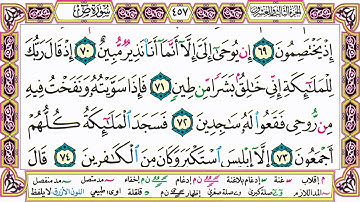 الجزء الثالث والعشرون
٤٥٧
سورة ص
إِذْ يَخْتَصِمُونَ ٦٩ إِن يُوحَىٰ إِلَيَّ إِلَّا أَنَّمَا أَنَا۠ نَذِيرٌ مُّبِينٌ ٧٠ إِذْ قَالَ رَبُّكَ
لِلْمَلَٰٓئِكَةِ إِنِّي خَٰلِقٌۢ بَشَرًا مِّن طِينٍ ٧١ فَإِذَا سَوَّيْتُهُۥ وَنَفَخْتُ فِيهِ
مِن رُّوحِي فَقَعُوا۟ لَهُۥ سَٰجِدِينَ ٧٢ فَسَجَدَ ٱلْمَلَٰٓئِكَةُ كُلُّهُمْ
أَجْمَعُونَ ٧٣ إِلَّآ إِبْلِيسَ ٱسْتَكْبَرَ وَكَانَ مِنَ ٱلْكَٰفِرِينَ ٧٤ قَالَ